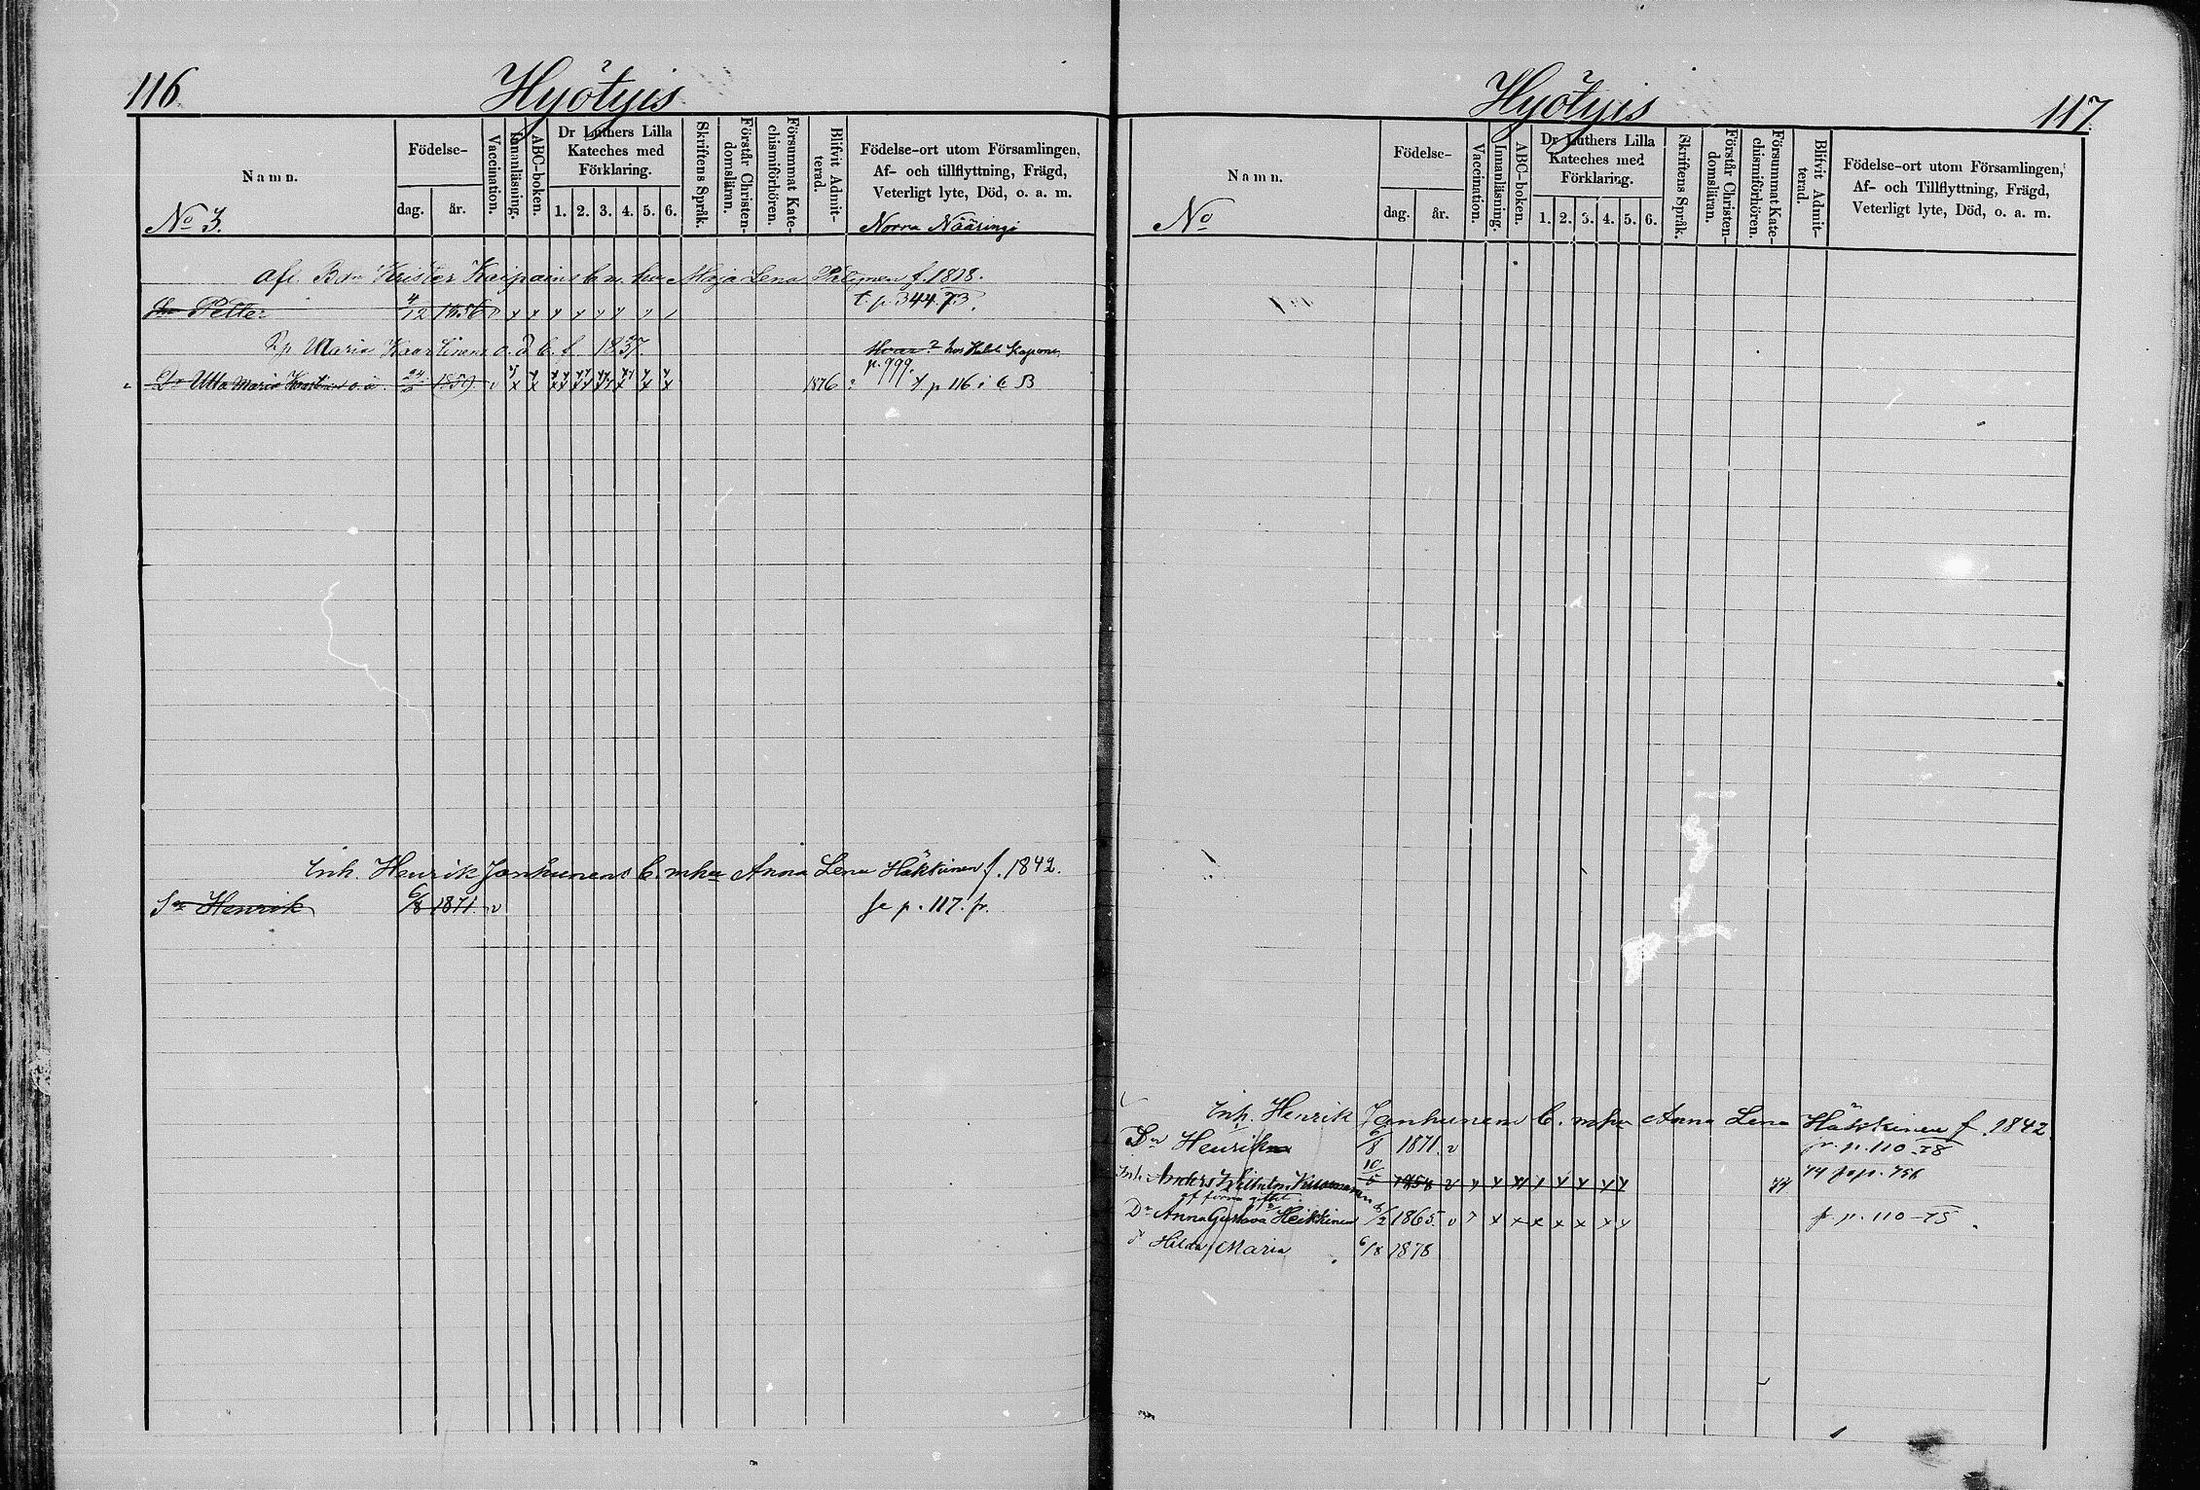 116
Hyötyis
Namn.
Födelse-
dag.
år.
Vaccination.
Innanläsning.
ABC-boken.
Dr Luthers Lilla
Kateches med
Förklaring.
1. 2. 3. 4. 5. 6.
Skriftens Språk.
Förstår Christen-
domsläran.
Försummat Kate-
chismiförhören.
Blifvit Admit-
terad.
Födelse-ort utom Församlingen,
Af- och tillflyttning, Frägd,
Veterligt lyte, Död, o. a. m.
No 3.
Norra Nääringi
afl. Krister Kaipains b. m. hu Maja Lena f. 1828.
Petter 4/12 1856 v x x x x x x x x t. p. 344. 73.
Maria 1837.
hos
p. 999.
Dr Ulla Maria o. ä. 1859 v x x x x x x x x 1876 p 116 i
Inh. Henrik Janhunens b. m hu Anna Lena Häkkinen f. 1842.
Sn Henrik 6/8 1871. v se p. 117. fr.
Hyötyis
117.
Namn.
Födelse-
dag.
år.
Vaccination.
Innanläsning.
ABC-boken.
Dr Luthers Lilla
Kateches med
Förklaring.
1. 2. 3. 4. 5. 6.
Skriftens Språk.
Förstår Christen-
domsläran.
Försummat Kate-
chismiförhören.
Blifvit Admit-
terad.
Födelse-ort utom Församlingen,
Af- och Tillflyttning, Frägd,
Veterligt lyte, Död, o. a. m.
No
Inh. Henrik Janhunens b. m hu Anna Lena Häkkinen f. 1842
Sn Henrik 6/8 1871. v fr. p. 110 - 78
Inh. Anders Wilhelm 10/5 1858 v x x x x x x x x 77 p. 756
af förra giftet.
Dr Anna Gustava Heikkinen 1865. v x x x x x x x fr p. 110 - 75
Hilda Maria 6/8 1878